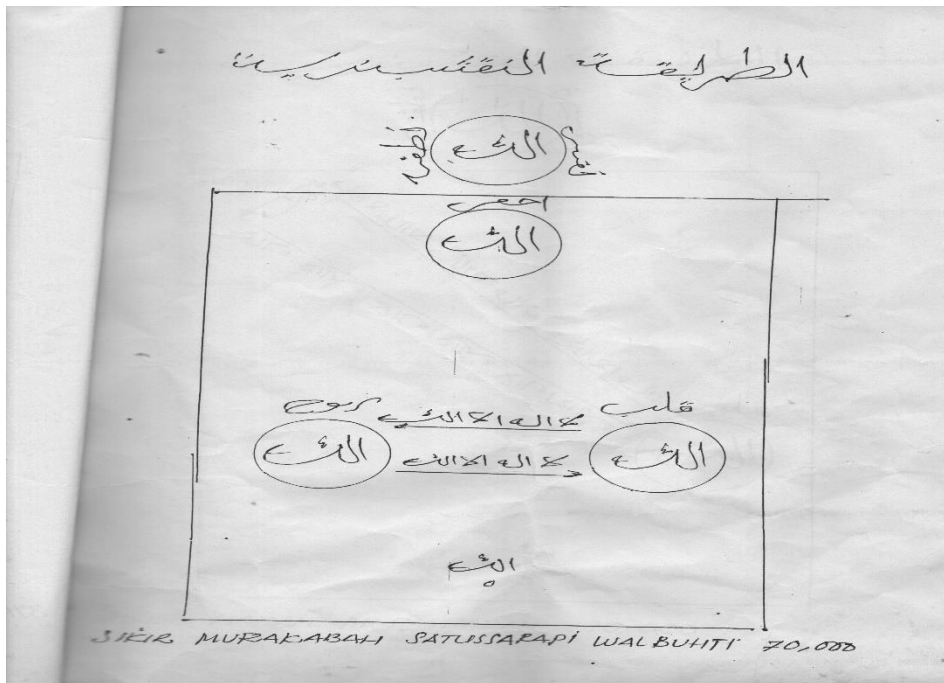 الطريقة النقشبندية
الله
اخفى
الله
قلب لا اله الا الله روح
الله لا اله الا الله الله
الله
SIKIR MURAKABAH SATUSSARAPI WALBUHTI 70,000